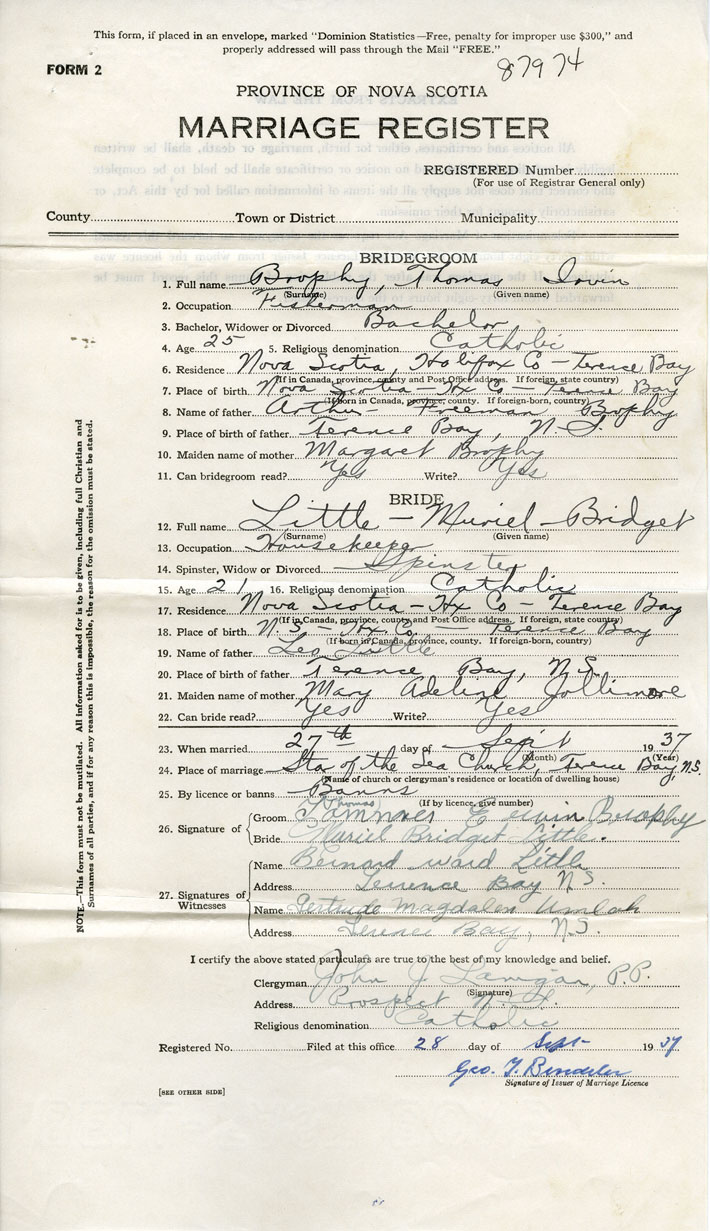 This form, if placed in an envelope, marked "Dominion Statistics—Free, penalty for improper use $300," and
properly addressed will pass through the Mail "FREE."
FORM 2
87974
PROVINCE OF NOVA SCOTIA
MARRIAGE REGISTER
REGISTERED Number
(For use of Registrar General only)
County Town or District Municipality
BRIDEGROOM
1. Full name Brophy, Thomas Irvin
(Surname) (Given name)
2. Occupation Fisherman
3. Bachelor, Widower or Divorced Bachelor
4. Age 25 5. Religious denomination Catholic
6. Residence Nova Scotia, Halifax Co — Terence Bay
(If in Canada, province, county and Post Office address. If foreign, state country)
7. Place of birth Nova Scotia — Hx Co — Terence Bay
(If born in Canada, province, county. If foreign-born, country)
8. Name of father Arthur Freeman Brophy
9. Place of birth of father Terence Bay, N.S.
10. Maiden name of mother Margaret Brophy
11. Can bridegroom read? Yes Write? Yes
BRIDE
12. Full name Little — Muriel Bridget
(Surname) (Given name)
13. Occupation Housekeeper
14. Spinster, Widow or Divorced Spinster
15. Age 21 16. Religious denomination Catholic
17. Residence Nova Scotia — Hx Co — Terence Bay
(If in Canada, province, county and Post Office address. If foreign, state country)
18. Place of birth N.S — Hx. Co — Terence Bay
(If born in Canada, province, county. If foreign-born, country)
19. Name of father Leo Little
20. Place of birth of father Terence Bay, N.S.
21. Maiden name of mother Mary Adeline Jollimore
22. Can bride read? Yes Write? Yes
23. When married 27th day of Sept 1937
(Month) (Year)
24. Place of marriage Star of the Sea Church, Terence Bay N.S.
(Name of church or clergyman's residence or location of dwelling house)
25. By licence or banns Banns
(If by licence, give number)
(Thomas)
26. Signature of Groom Brophy
Bride Muriel Bridget Little.
27. Signatures of Witnesses
Name Bernard Ward Little
Address Terence Bay N.S.
Name Gertrude Magdalen Umlah
Address Terence Bay, N.S.
I certify the above stated particulars are true to the best of my knowledge and belief.
Clergyman John J Lanigan, P.P.
(Signature)
Address Prospect N.S.
Religious denomination Catholic
Registered No. Filed at this office 28 day of Sept 1937
Geo. T.
Signature of Issuer of Marriage Licence
[SEE OTHER SIDE]
NOTE.—This form must not be mutilated. All information asked for is to be given, including full Christian and
Surnames of all parties, and if for any reason this is impossible, the reason for the omission must be stated.